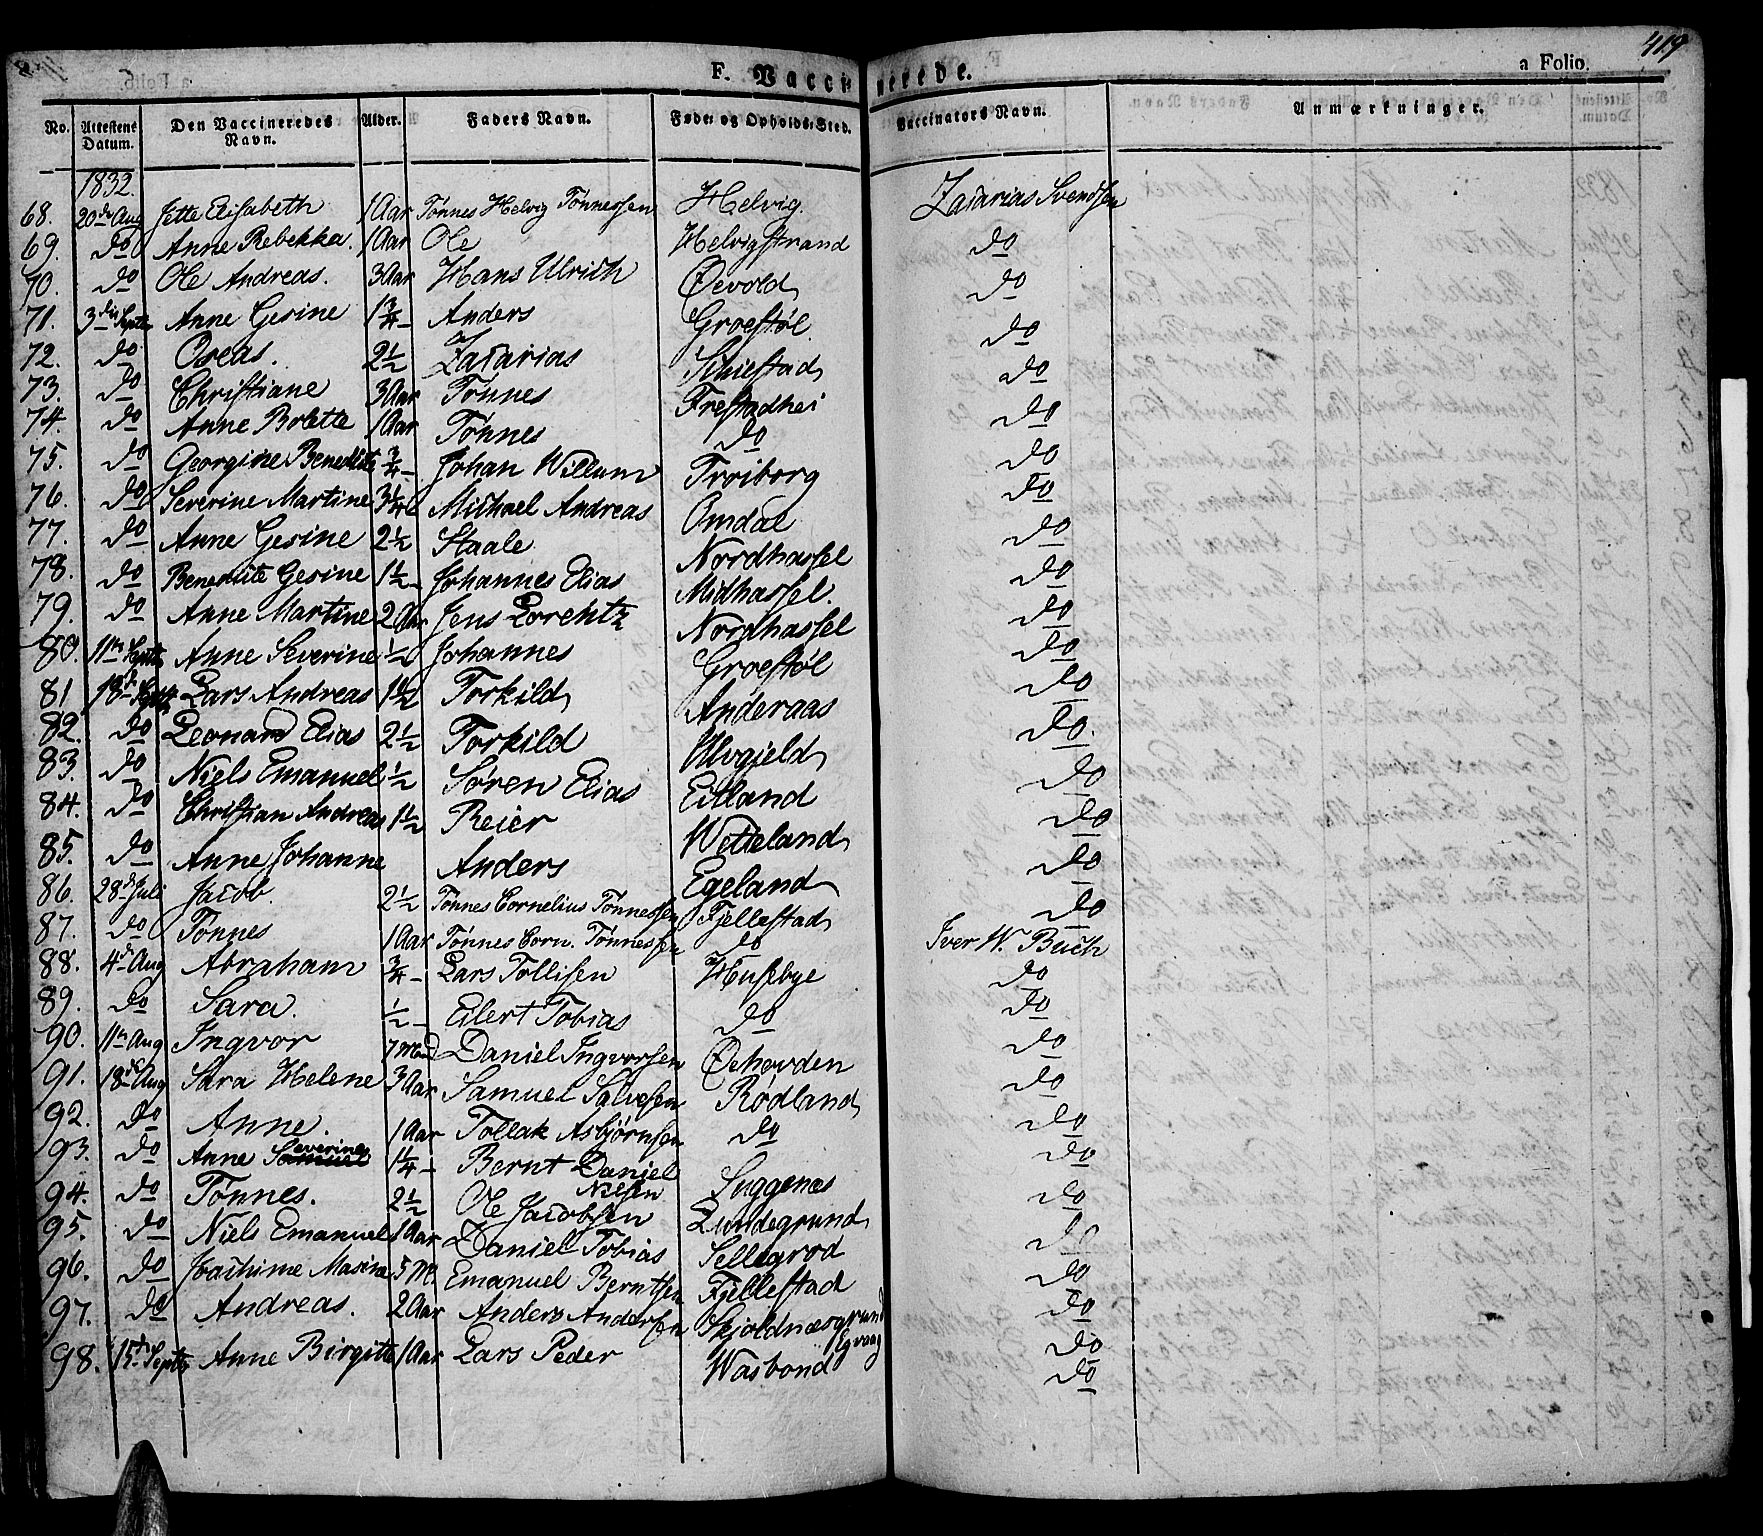 F. Vaccinerede. a Folio. 419
No. Attestens Datum. Den Vaccineredes Navn. Alder. Faders Navn. Føde- og Opholds-Sted. Vaccinators Navn. Anmærkninger.
1832.
68. 20de Aug Jette Elisabeth 1 Aar Tönnes Helvig Tönnessen Helvig. Zacarias Svendsen
69. do Anne Rebekka. 1 Aar Ole Helvigstrand do
70. do Ole Andreas. 3 Aar Hans Ulrich Øevold do
71. 3die Septr Anne Gesine 1 3/4 - Anders Groestøl do
72. do Oseas. 2 1/2 Zacarias Schiestad do
73. do Christiane 3 Aar Tönnes Frestadhei do
74. do Anne Bolette 1 Aar Tönnes do do
75. do Georgine Benedicte 3/4 - Johan Willum Troiborg do
76. do Severine Martine 3 1/4 Michael Andreas Omdal do
77. do Anne Gesine 2 1/2 Staale Nordhassel do
78. do Benedicte Gesine 1 1/2 - Johannes Elias Midhassel. do
79. do Anne Martine 2 Aar Jens Lorentz Nordhassel do
80. 11te Septr Anne Severine 1/2 Johannes Groestøl do
81 18de Septr Lars Andreas 1 1/2 Torkild Anderaas do
82. do Leonard Elias 2 1/2 Torkild Ulvgield do.
83. do Niels Emanuel 1/2 Søren Elias Eitland do
84. do Christian Andreas 1 1/2 Reier Wetteland do
85. do Anne Johanne Anders Egeland do
86. 28de Juli Jacob. 2 1/2 Tönnes Cornelius Tönnessen Fjellestad do
87. do Tönnes 1 Aar Tönnes Corn. Tönnessen do Iver W. Buch
88. 4de Aug Abraham 3/4 - Lars Tollisen Husebye do
89. do Sara. 1/2 - Eilert Tobias do do
90. 11te Aug Ingvor 7 Maand Daniel Ingvorsen Øehovden do
91. 18de Aug Sara Helene 3 Aar Samuel Salvesen Rødland do
92. do Anne. 1 Aar Tollak Asbjørnsen do do
93. do Anne Samuel Severine 1 1/4 - Bernt Daniel Nilsen Snggenæs do
94. do Tönnes. 2 1/2 Ole Jacobsen Lundegrund do
95. do Niels Emanuel 1 Aar Daniel Tobias Sellegrod do
96. do Joachime Masine 5 M. Emanuel Berntsen Fjellestad do
97. do Andreas. 2 Aar Anders Andersen Skjoldnæsgrund Egvaag do
98. 15de Septr Anne Birgitte 1 Aar Lars Peder Wasbond do
do